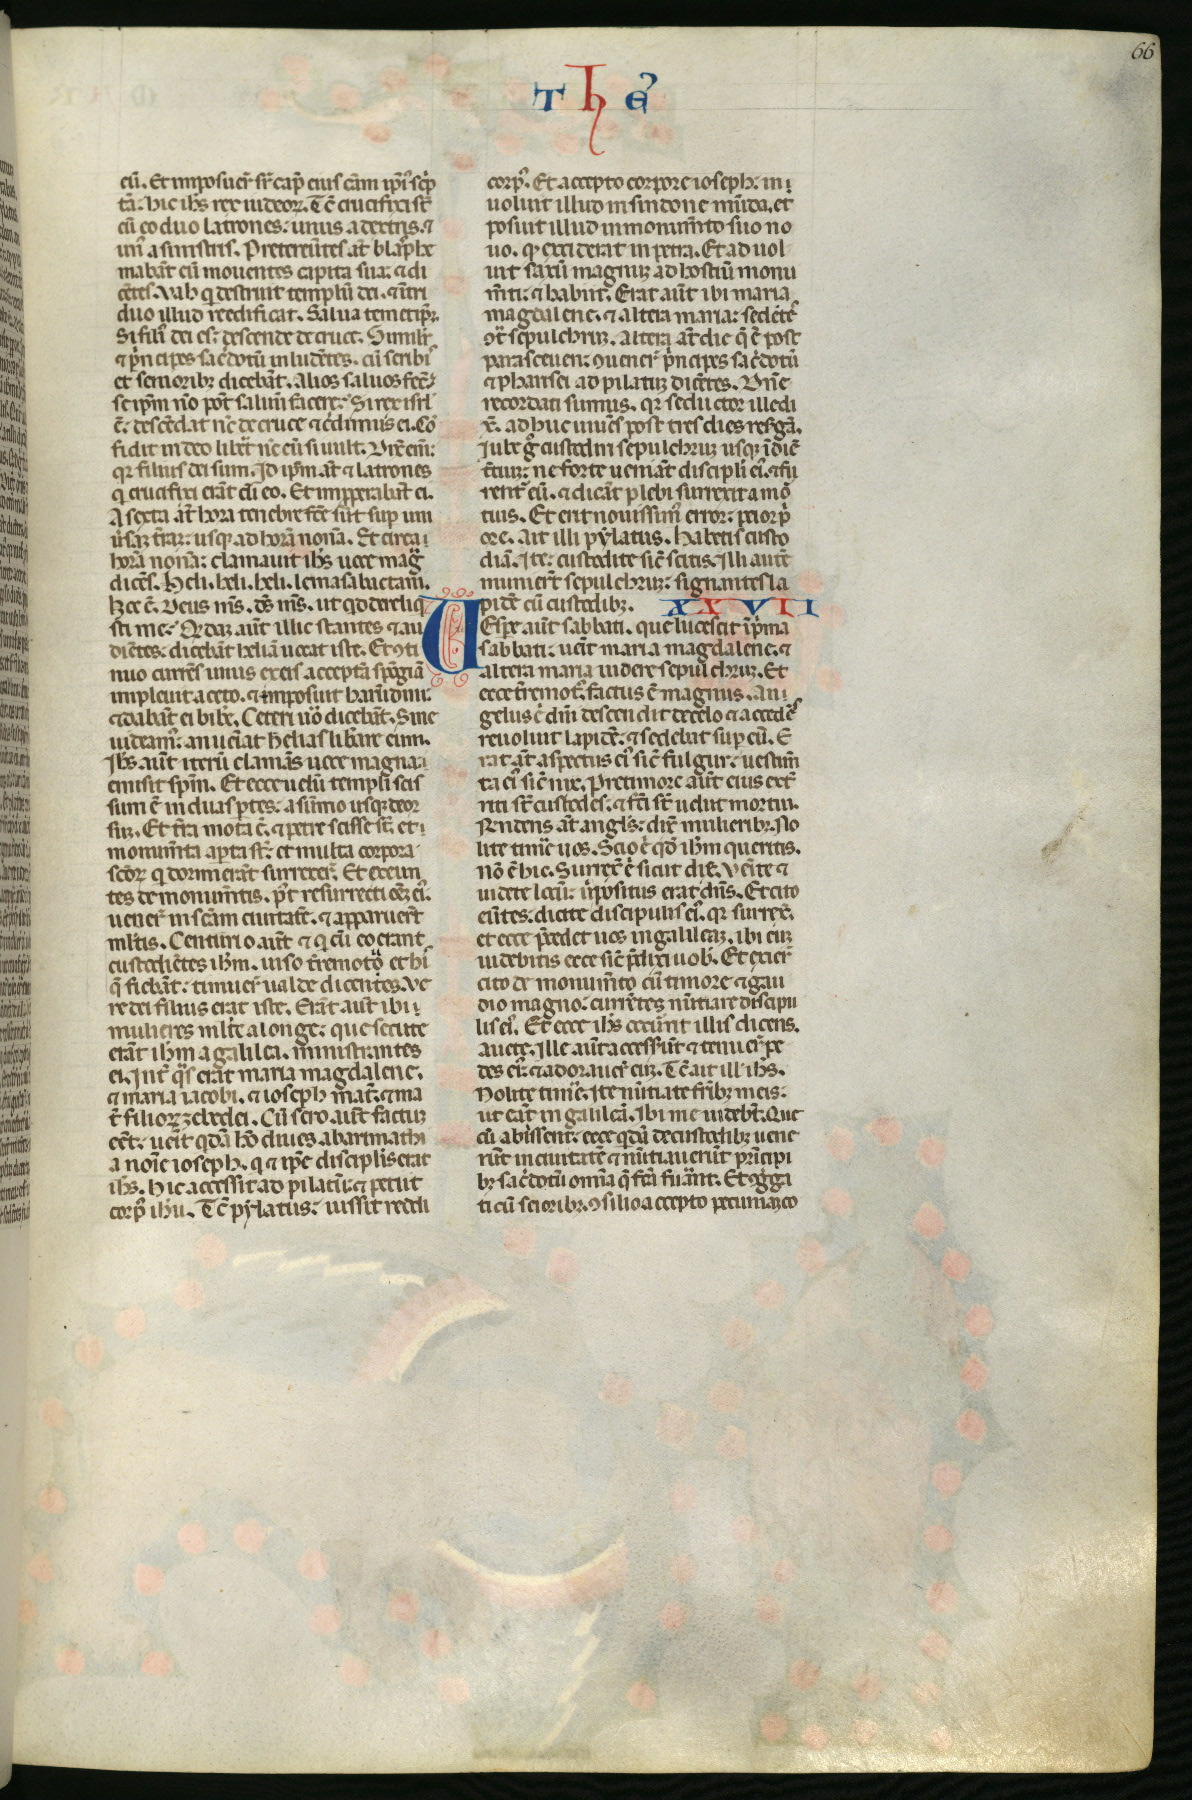 66
T h E᾽
cū. Et imposuer̄ sr̄ cap̄ eius cām ip̄i᾽ sc̄p
tā. hic ih̄s rex iudeoꝝ. Tc̄ crucifixi st̄
cū eo duo latrones: unus a dextris. ⁊
un᾽ a sinistris. Pretereūtes at̄ blasphe
mabāt eū mouentes capita sua: ⁊ di
cētes. Vah q̇ destruit templū dei. ⁊ ītri
duo illud reedificat. Salua temetip̄z.
Si fili᾽ dei es: descende de cruce. Similr̄
⁊ p̄ncipes sac̄dotū inludētes. cū scribis
et senioribꝫ dicebāt. Alios saluos fec̄:
se ip̄m nō pōt saluū facere. Si rex isrl̄
ē: descēdat nc̄ de cruce ⁊ c̄dimus ei. Cō
fidit in deo liber̄ nc̄ eū si uult. Dix̄ em̄:
qꝛ filius dei sum. Id ip̄m at̄ ⁊ latrones
q̇ crucifixi erāt cū eo. Et impperabāt ei.
A sexta at̄ hora tenebre fc̄e sūt sup uni
u᾽saꝫ tr̄aꝫ: usqꝫ ad horā nonā. Et circa
horā nonā: clamauit ih̄s uoce mag᾽
dicēs. heli. heli. heli. lema sabactani.
hec ē. Deus ms̄. ds̄ ms̄. ut qd dereliq̇
sti me. Qꝺaꝫ aūt illic stantes ⁊ au
diētes: dicebāt heliā uocat iste. Et ꝯti
nuo currēs unus ex eis acceptā spōgiā
impleuit aceto. ⁊ imposuit harūdini:
⁊ dabāt ei biber̄. Ceteri uō dicebāt. Sine
uideam᾽: an ueniat helias liberare eum.
Ih̄s aūt iterū clamās uoce magna
emisit spm̄. Et ecce uelū templi scis
sum ē in duas ꝑtes: a sūmo usqꝫ deor
sūꝫ. Et tr̄a mota ē. ⁊ petre scisse st̄. et
monumīta apta st̄: et multa corpora
scōꝝ q̇ dormierāt surrexer̄. Et exeun
tes de monumītis. p᾽t resurrectiōeꝫ ei᾽.
uener̄ in scām ciuitatē. ⁊ apparuert̄
mltis. Centurio aūt ⁊ q̇ cū eo erant
custodiētes ih̄m. uiso tr̄emotu ⁊ hi᾽
q̄ fiebāt: timuer̄ ualde dicentes. Ve
re dei filius erat iste. Erāt aūt ibi
mulieres mlt̄e a longe: que secute
erāt ih̄m a galilea. ministrantes
ei. Int᾽ q̄s erat maria magdalene.
⁊ maria iacobi. ⁊ ioseph mat᾽. ⁊ ma
t᾽ filioꝝ zebedei. Cū sero aūt factuꝫ
eēt: uēit qdā hō diues ab arimathi
a noīe ioseph. q̇ ⁊ ip̄e disciplus erat
ih̄s. hic accessit ad pilatū: ⁊ petiit
corp᾽ ih̄u. Tc̄ pylatus: iussit reddi
corp᾽. Et accepto corpore ioseph: in
uoluit illud in sindone mūda. et
posuit illud in monumīto suo no
uo. qꝺ exciderat in petra. Et aduol
uit saxū magnuꝫ ad hostiū monu
mīti: ⁊ habiit. Erat aūt ibi maria
magdalene. ⁊ altera maria: sedētes
ꝯt᾽ sepulchruꝫ. Altera at̄ die q̄ ē post
parasceuen: ꝯuener̄ p̄ncipes sac̄dotū
⁊ pharisei ad pilatuꝫ dicētes. Dn̄e
recordati sumus. qꝛ seductor ille di
x̄. adhuc uiuēs post tres dies res᾽gā.
Iube g᾽ custodiri sepulchruꝫ usqꝫ ī diē
t᾽ciuꝫ: ne forte ueniāt discipli ei᾽. ⁊ fu
rent᾽ eū. ⁊ dicāt plebi surrexit a mo᾽
tuis. Et erit nouissim᾽ error: peior p᾽
ore. Ait illi pylatus. habetis custo
diā. Ite: custodite sic̄ scitis. Illi autē
munierūt sepulchruꝫ: signantes la
pidē cū custodibꝫ. XXVIII
VEspe aūt sabbati. que lucescit ip̄ma
sabbati: uēit maria magdalene. ⁊
altera maria uidere sepulchruꝫ. Et
ecce tr̄emot᾽ factus ē magnus. An
gelus ē dn̄i descendit de celo ⁊ accedēs
reuoluit lapidē: ⁊ sedebat sup eū. E
rat at̄ aspectus ei᾽ sic̄ fulgur: uestim
ta ei᾽ sic̄ nix. Pre timore aūt eius ext᾽
riti st̄ custodes: ⁊ fc̄i st̄ uelut mortui.
Rn̄dens at̄ angls: dix̄ mulieribꝫ. No
lite timē uos. Scio ē qꝺ ih̄m queritis.
nō ē hic. Surrex̄ ē sicut dix̄. Venite ⁊
uidete locū: u᾽ positus erat dn̄s. Et cito
eūtes: dicite discipulis ei᾽. qꝛ surrex̄.
et ecce p̄cedet uos in galileaꝫ. ibi eūꝫ
uidebitis ecce sic̄ p̄dixi uob᾽. Et exier̄
cito de monumīto cū timore ⁊ gau
dio magno: currētes nūtiare discipu
lis ei᾽. Et ecce ih̄s occurrit illis dicens.
Auete. Ille aūt accessūt ⁊ tenuer̄ pe
des ei᾽: ⁊ adorauer̄ eūꝫ. Tc̄ ait ill᾽ ih̄s.
Nolite timē. Ite nūtiate fr̄ibꝫ meis:
ut eāt in galileā. Ibi me uidebt̄. Que
cū abissent: ecce qdā de custodibꝫ uene
rūt in ciuitatē ⁊ nūtiauerūt principi
bꝫ sac̄dotū omīa q̄ fc̄a fuāt. Et ꝯg᾽ga
ti cū seniorībꝫ. ꝯsilio accepto pecuniaꝫ co